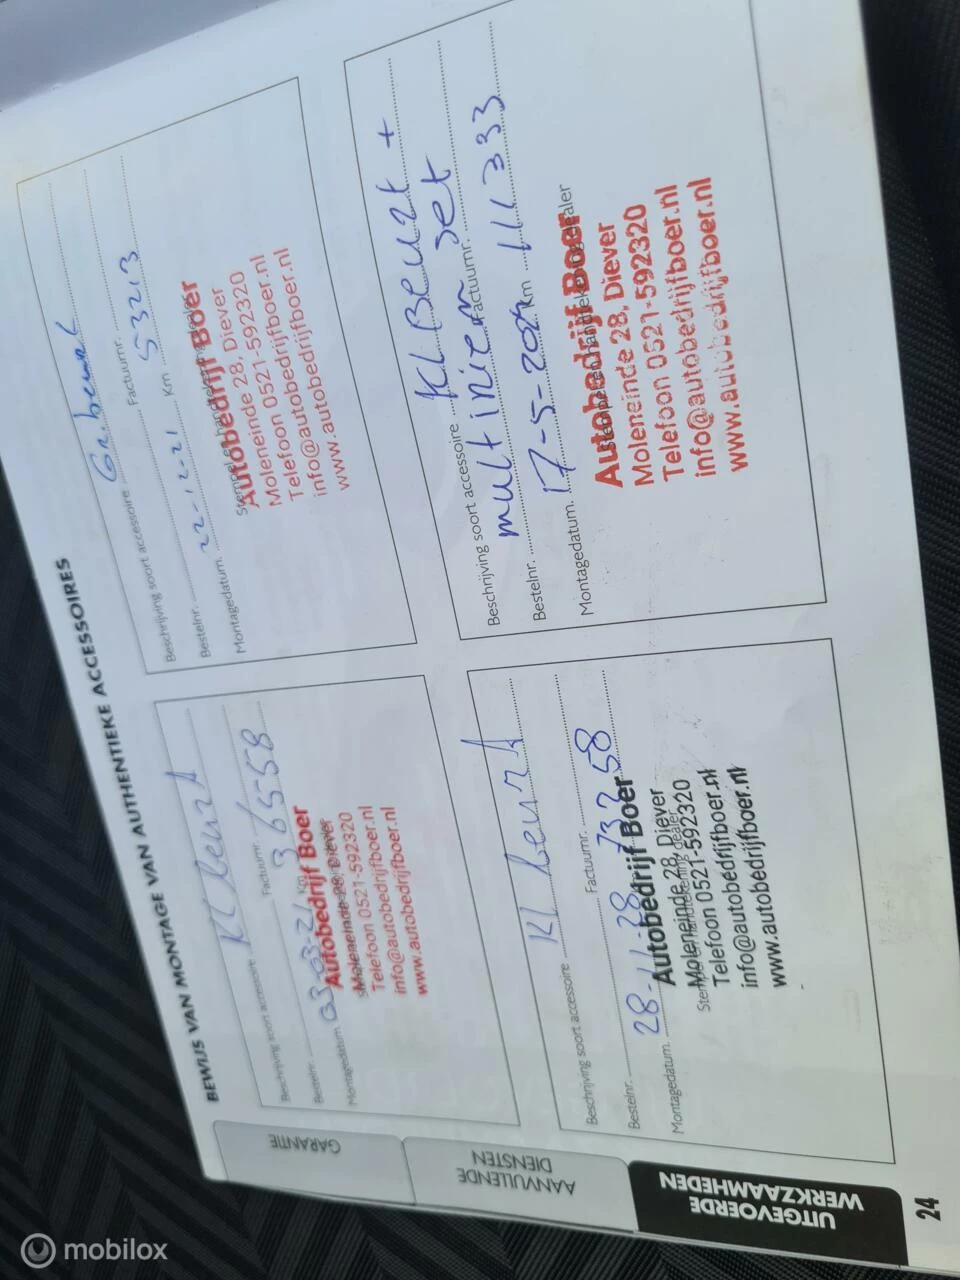 BEWIJS VAN MONTAGE VAN AUTHENTIEKE ACCESSOIRES
Kl beurt
Beschrijving soort accessoire
Bestelnr. Factuurnr.
Montagedatum. 03-03-21 Km 36558
Autobedrijf Boer
Moleneinde 28, Diever
Telefoon 0521-592320
info@autobedrijfboer.nl
www.autobedrijfboer.nl
Gr. beurt
Beschrijving soort accessoire
Bestelnr. Factuurnr.
Montagedatum. 22-12-21 Km 53213
Stempel en handtekening dealer
Autobedrijf Boer
Moleneinde 28, Diever
Telefoon 0521-592320
info@autobedrijfboer.nl
www.autobedrijfboer.nl
Kl beurt
Beschrijving soort accessoire
Bestelnr. Factuurnr.
Montagedatum. 28-11-28 73258
Stempel en handtekening dealer
Autobedrijf Boer
Moleneinde 28, Diever
Telefoon 0521-592320
info@autobedrijfboer.nl
www.autobedrijfboer.nl
Beschrijving soort accessoire Kl Beurt +
multiriem set
Bestelnr. Factuurnr.
Montagedatum. 17-5- Km 111333
Stempel en handtekening dealer
Autobedrijf Boer
Moleneinde 28, Diever
Telefoon 0521-592320
info@autobedrijfboer.nl
www.autobedrijfboer.nl
GARANTIE
AANVULLENDE
DIENSTEN
UITGEVOERDE
WERKZAAMHEDEN
24
mobilox